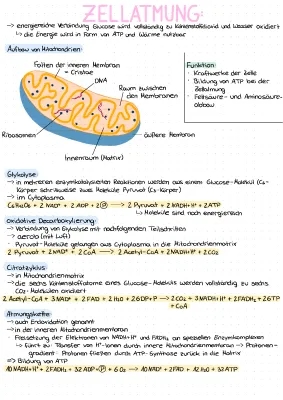 ZELLATMUNG:
→ energiereiche Verbindung Glucose wird vollständig zu Kohlenstoffdioxid und Wasser oxidiert
↳ die Energie wird in Form von ATP und Wärme nutzbar
Aufbau von Mitochondrien:
Falten der inneren Membran
= Cristae
DNA
Raum zwischen
den Membranen
Ribosomen
äußere Membran
Innenraum (Matrix)
Funktion:
· Kraftwerke der Zelle
· Bildung von ATP bei der
Zellatmung
· Fettsäure- und Aminosäure-
abbau
Glykolyse
→ in mehreren enzymkatalysierten Reaktionen werden aus einem Glucose-Molekül (C6-
Körper) schrittweise zwei Moleküle Pyruvat (C3-Körper)
→ im Cytoplasma
C6H12O6 + 2 NAD⁺ + 2 ADP + 2 Ⓟ → 2 Pyruvat + 2 NADH+H⁺ + 2 ATP
↳ Moleküle sind noch energiereich
oxidative Decarboxylierung:
→ Verbindung von Glykolyse mit nachfolgenden Teilschritten
→ aerob (mit Luft)
· Pyruvat-Moleküle gelangen aus Cytoplasma in die Mitochondrienmatrix
2 Pyruvat + 2 NAD⁺ + 2 CoA → 2 Acetyl-CoA + 2 NADH+H⁺ + 2 CO2
Citratzyklus
→ in Mitochondrienmatrix
→ die sechs Kohlenstoffatome eines Glucose-Moleküls werden vollständig zu sechs
CO2-Molekülen oxidiert
2 Acetyl-CoA + 3 NAD⁺ + 2 FAD + 2 H2O + 2 GDP + P → 2 CO2 + 3 NADH+H⁺ + 2 FADH2 + 2 GTP
+ CoA
Atmungskette
→ auch Endoxidation genannt
→ in der inneren Mitochondrienmembran
· Freisetzung der Elektronen von NADH+H⁺ und FADH2 an speziellen Enzymkomplexen
↳ führt zu: Transfer von H⁺-Ionen durch innere Mitochondrienmembran → Protonen-
gradient · Protonen fließen durch ATP-Synthase zurück in die Matrix
⇒ Bildung von ATP
10 NADH+H⁺ + 2 FADH2 + 32 ADP + Ⓟ + 6 O2 → 10 NAD⁺ + 2 FAD + 12 H2O + 32 ATP